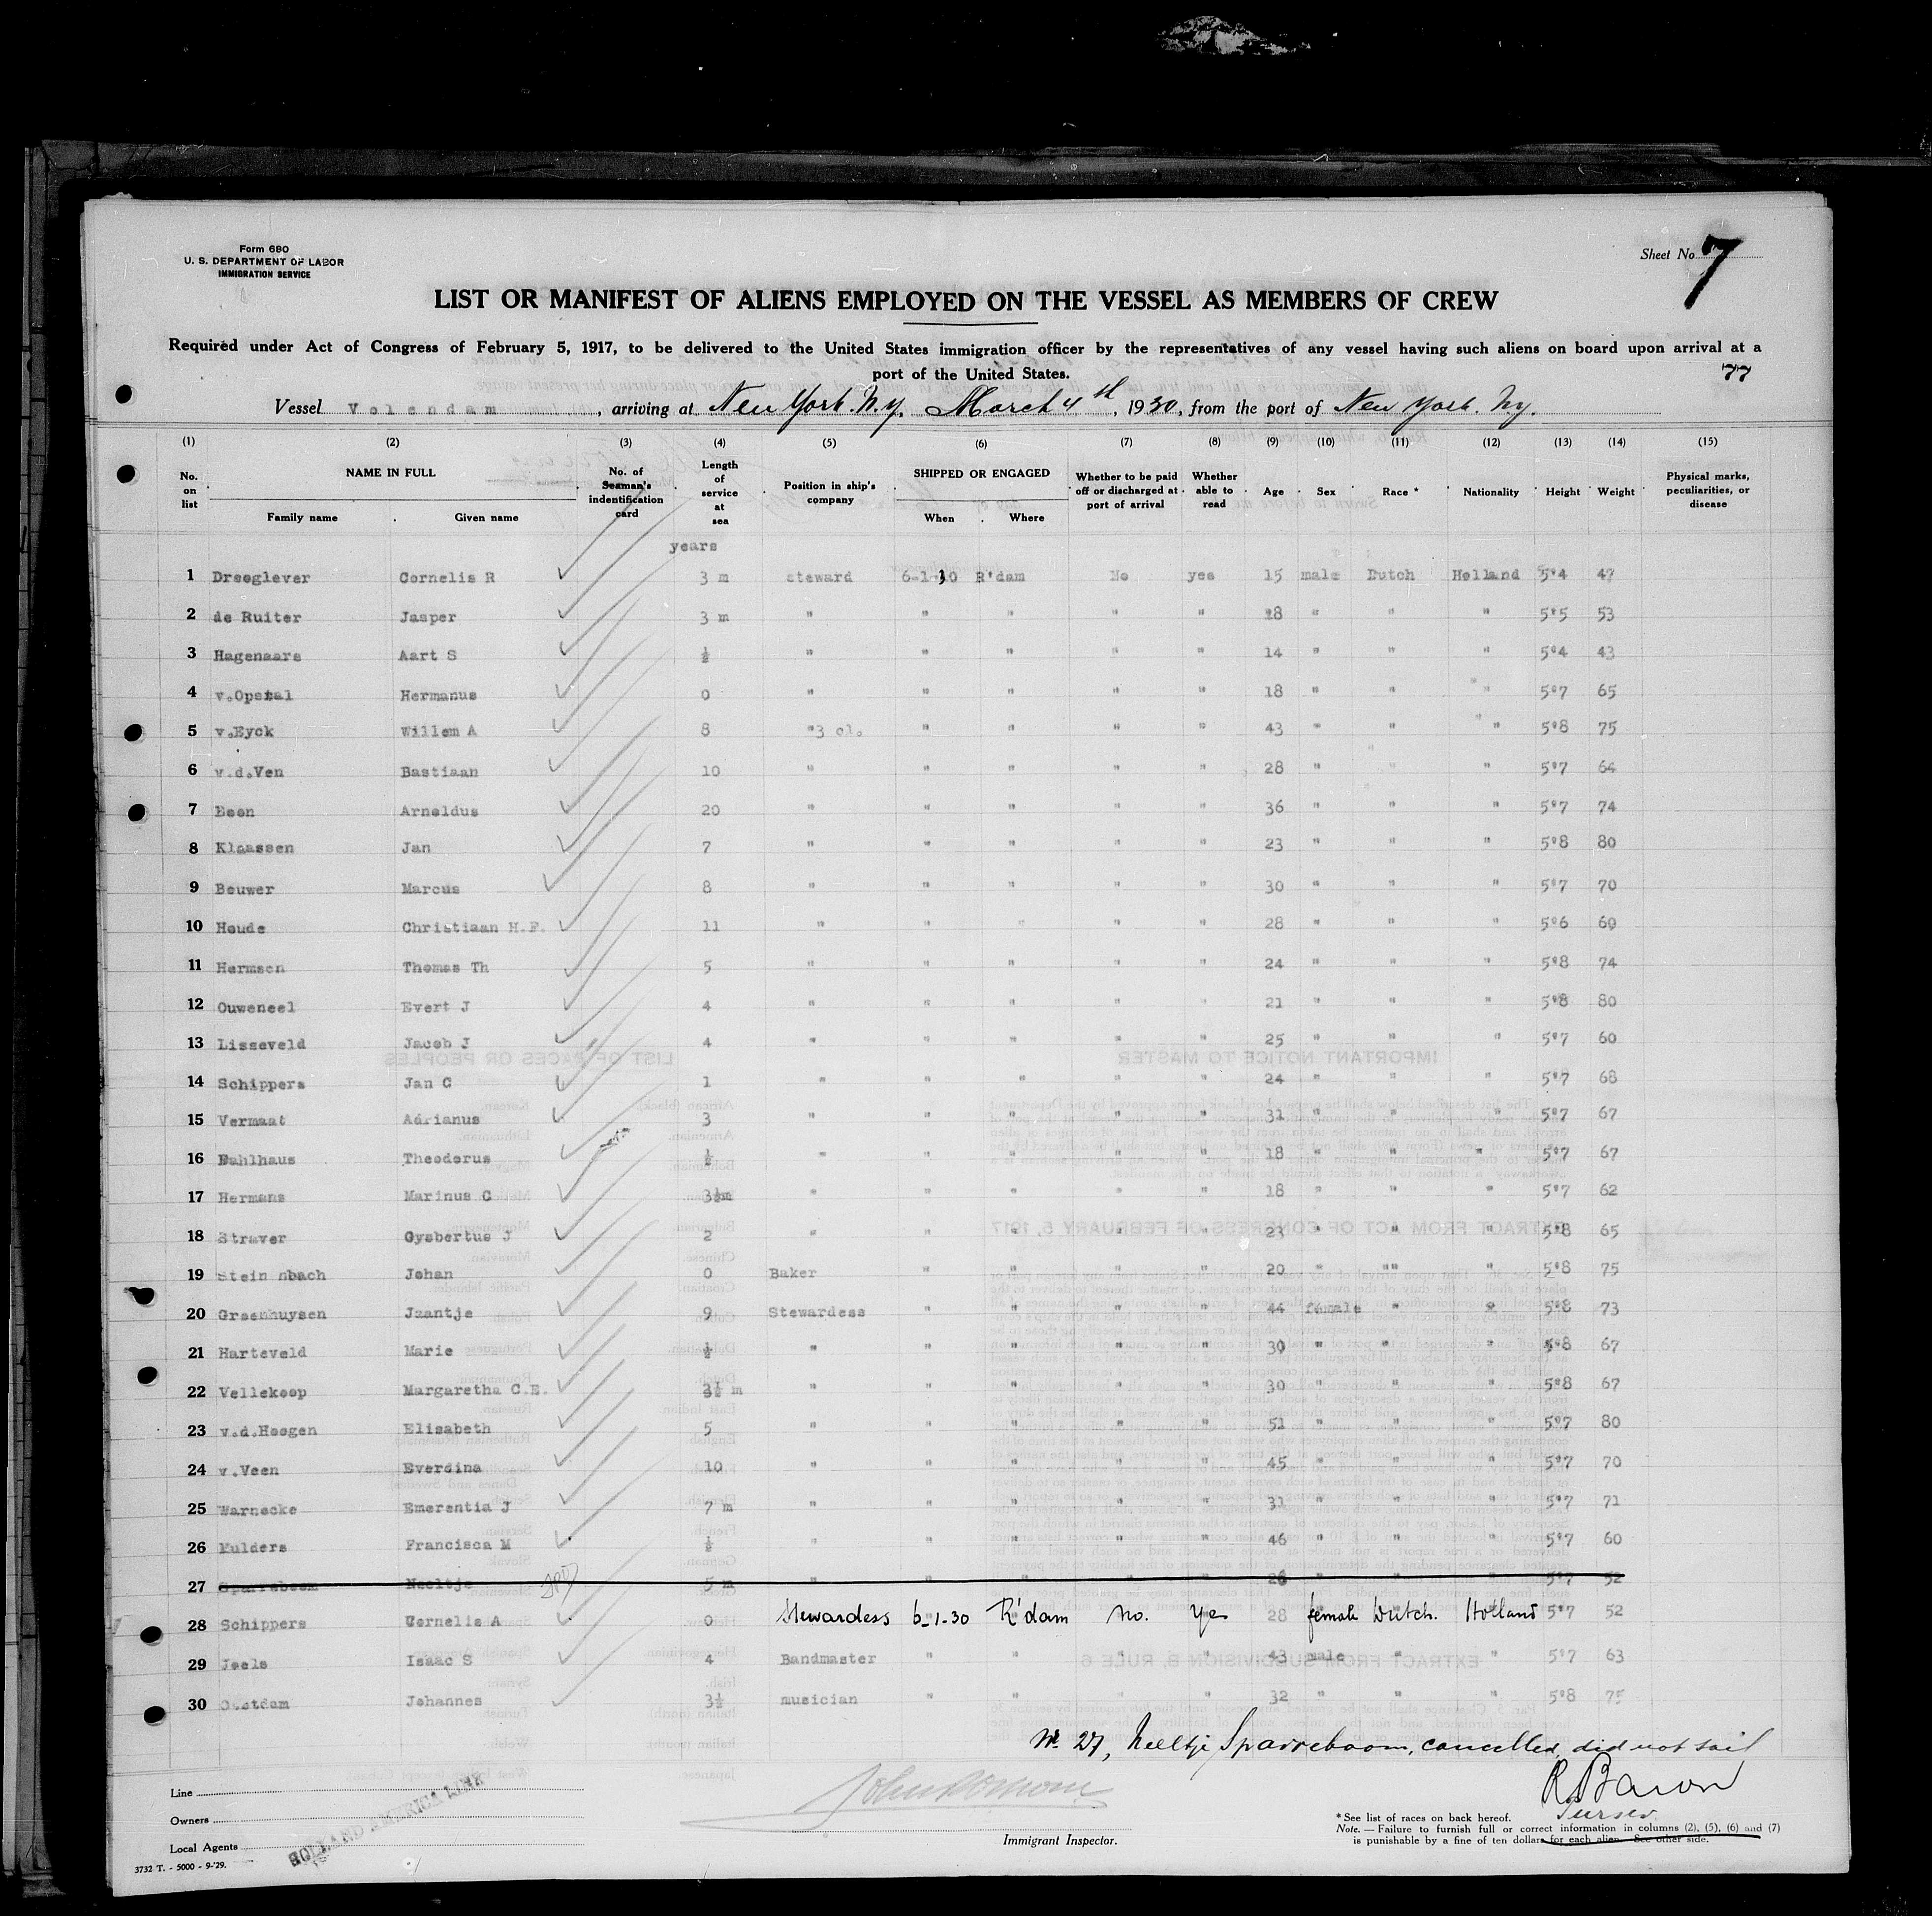 Form 680
U. S. DEPARTMENT OF LABOR
IMMIGRATION SERVICE
Sheet No. 7
LIST OR MANIFEST OF ALIENS EMPLOYED ON THE VESSEL AS MEMBERS OF CREW
Required under Act of Congress of February 5, 1917, to be delivered to the United States immigration officer by the representatives of any vessel having such aliens on board upon arrival at a
port of the United States.
77
Vessel Volendam, arriving at New York. N.Y. March 4th, 1930, from the port of New York. Ny.
(1) (2) (3) (4) (5) (6) (7) (8) (9) (10) (11) (12) (13) (14) (15)
No. on list NAME IN FULL Family name Given name No. of Seaman's indentification card Length of service at sea Position in ship's company SHIPPED OR ENGAGED When Where Whether to be paid off or discharged at port of arrival Whether able to read Age Sex Race * Nationality Height Weight Physical marks, peculiarities, or disease
years
1 Dreeglever Cornelis R 3 m steward 6-1-30 R'dam No yes 15 male Dutch Holland 5'4 47
2 de Ruiter Jasper 3 m " " " " " 18 " " " 5'5 53
3 Hagenaars Aart S ½ " " " " " 14 " " " 5'4 43
4 v.Opstal Hermanus 0 " " " " " 18 " " " 5'7 65
5 v.Eyck Willem A 8 "3 cl. " " " " 43 " " " 5'8 75
6 v.d.Ven Bastiaan 10 " " " " " 28 " " " 5'7 64
7 Been Arneldus 20 " " " " " 36 " " " 5'7 74
8 Klaassen Jan 7 " " " " " 23 " " " 5'8 80
9 Beuwer Marcus 8 " " " " " 30 " " " 5'7 70
10 Heude Christiaan H.F. 11 " " " " " 28 " " " 5'6 69
11 Hermsen Themas Th 5 " " " " " 24 " " " 5'8 74
12 Ouweneel Evert J 4 " " " " " 21 " " " 5'8 80
13 Lisseveld Jacob J 4 " " " " " 25 " " " 5'7 60
14 Schippers Jan C 1 " " " " " 24 " " " 5'7 68
15 Vermaat Adrianus 3 " " " " " 31 " " " 5'7 67
16 Dahlhaus Theoderus ½ " " " " " 18 " " " 5'7 67
17 Hermans Marinus C 3½m " " " " " 18 " " " 5'7 62
18 Straver Gysbertus J 2 " " " " " 23 " " " 5'8 65
19 Stein nbach Johan 0 Baker " " " " 20 " "" " 5'8 75
20 Groenhuysen Jzantje 9 Stewardess " " " " 44 female " " 5'8 73
21 Harteveld Marie ½ " " " " " 30 " " " 5'8 67
22 Vellekoop Margaretha C.E. 3½ m " " " " " 30 " " " 5'8 67
23 v.d.Hoogen Elisabeth 5 " " " " " 51 " " " 5'7 80
24 v.Veen Everdina 10 " " " " " 45 " " " 5'7 70
25 Warnecke Emerentia J 7 m " " " " " 31 " " " 5'7 71
26 Mulders Francisca M ½ " " " " " 46 " " " 5'7 60
27 Sparreboom Neeltje 5 m " " " " " 28 " " " 5'7 52
28 Schippers Cornelis A 0 Stewardess 6-1-30 R'dam No. Yes 28 female Dutch. Holland 5'7 52
29 Jeels Isaac S 4 Bandmaster " " " " 43 male " " 5'7 63
30 Oostdam Johannes 3½ musician " " " " 32 " " " 5'8 75
Nr. 27, Neeltje Sparreboom, cancelled, did not sail
R Baron
Purser.
Line
Owners
Local Agents
HOLLAND AMERICA LINE
Immigrant Inspector.
* See list of races on back hereof.
Note.—Failure to furnish full or correct information in columns (2), (5), (6) and (7)
is punishable by a fine of ten dollars for each alien. See other side.
3732 T. - 5000 - 9-'29.